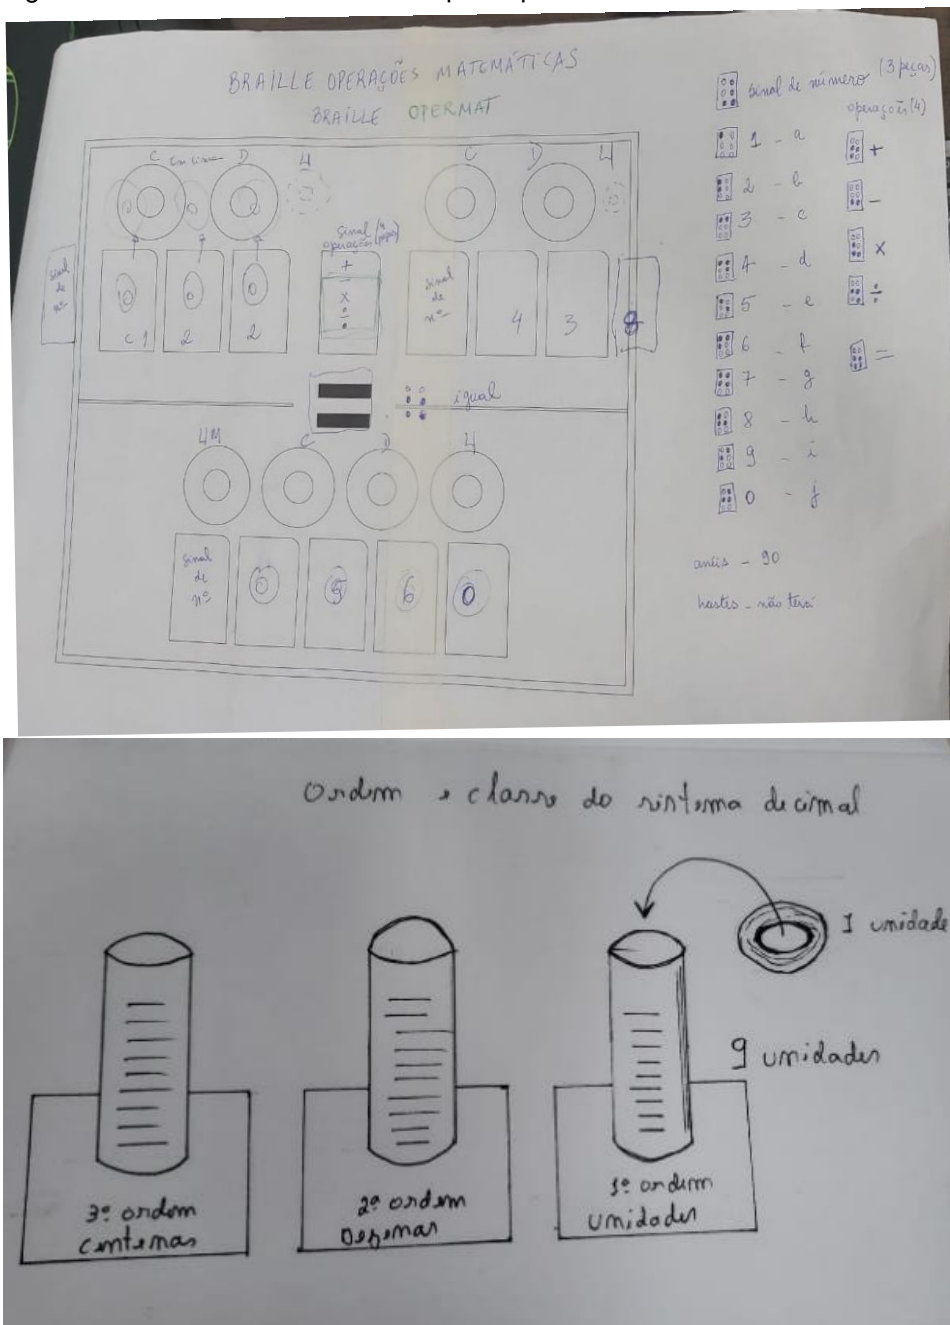 BRAILLE OPERAÇÕES MATEMÁTICAS
BRAILLE OPERMAT
C
D
U
C
D
U
sinal
de
nº
C 1
2
2
sinal
operações (4 peças)
+
-
x
÷
sinal
de
nº
4
3
igual
UM
C
D
U
sinal
de
nº
0
5
6
0
sinal de número (3 peças)
operações (4)
1 - a
2 - b
3 - c
4 - d
5 - e
6 - f
7 - g
8 - h
9 - i
0 - j
+
-
x
÷
=
anéis - 90
hastes - não terá
Ordem e classe do sistema decimal
1 unidade
9 unidades
3ª ordem
centenas
2ª ordem
Dezenas
1ª ordem
unidades